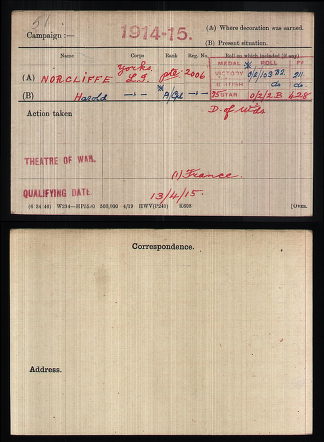 51
Campaign :— 1914-15. (A) Where decoration was earned.
(B) Present situation.
Name Corps Rank Reg. No. Roll on which included (if any)
MEDAL ROLL
(A) NORCLIFFE Yorks. L.I. Pte 2006 VICTORY O/2/103 B2 211
(B) Harold —"— A/Cpl —"— BRITISH do do
15 STAR O/2/2.B 428
Action taken D. of Wds
THEATRE OF WAR. (1) France.
QUALIFYING DATE. 13/4/15.
(6 34 46) W234—HP 500,000 4/19 HWV(P240) K608 [Over.
Correspondence.
Address.